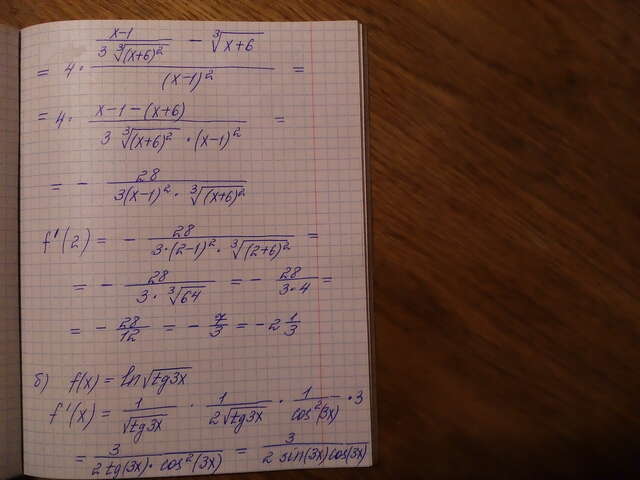 = 4 · ((x-1)/(3∛(x+6)²) - ∛(x+6))/((x-1)²) =
= 4 · (x-1-(x+6))/(3∛(x+6)² · (x-1)²) =
= - 28/(3(x-1)² · ∛(x+6)²)
f'(2) = - 28/(3·(2-1)² · ∛(2+6)²) =
= - 28/(3 · ∛64) = - 28/(3·4) =
= - 28/12 = - 7/3 = -2 1/3
б) f(x) = ln√tg3x
f'(x) = 1/√tg3x · 1/(2√tg3x) · 1/cos²(3x) · 3
= 3/(2 tg(3x) · cos²(3x)) = 3/(2 sin(3x) cos(3x))